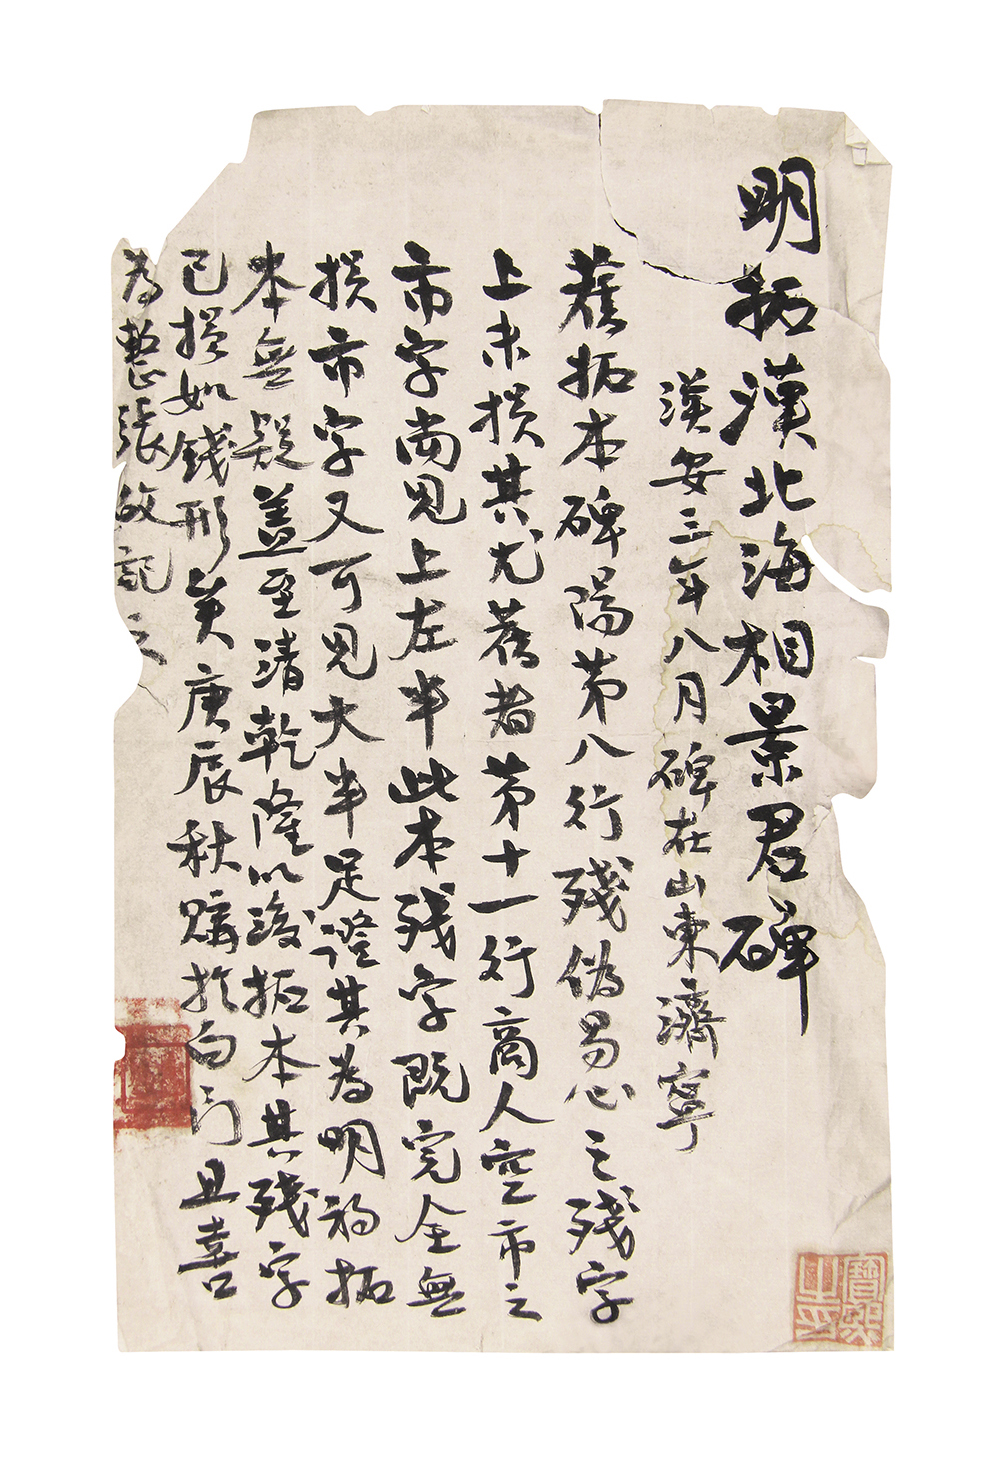 明拓漢北海相景君碑
漢安三年八月碑在山東濟寧
舊拓本碑陽第八行殘偽易心之殘字
上未損其尤舊者第十一行商人空市之
市字尚見上左半此本殘字既完全無
損市字又可見大半足證其為明初拓
本無疑蓋至清乾隆以後拓本其殘字
已損如錢形矣庚辰秋購於白門且喜
為整張故記之
寶熙之印